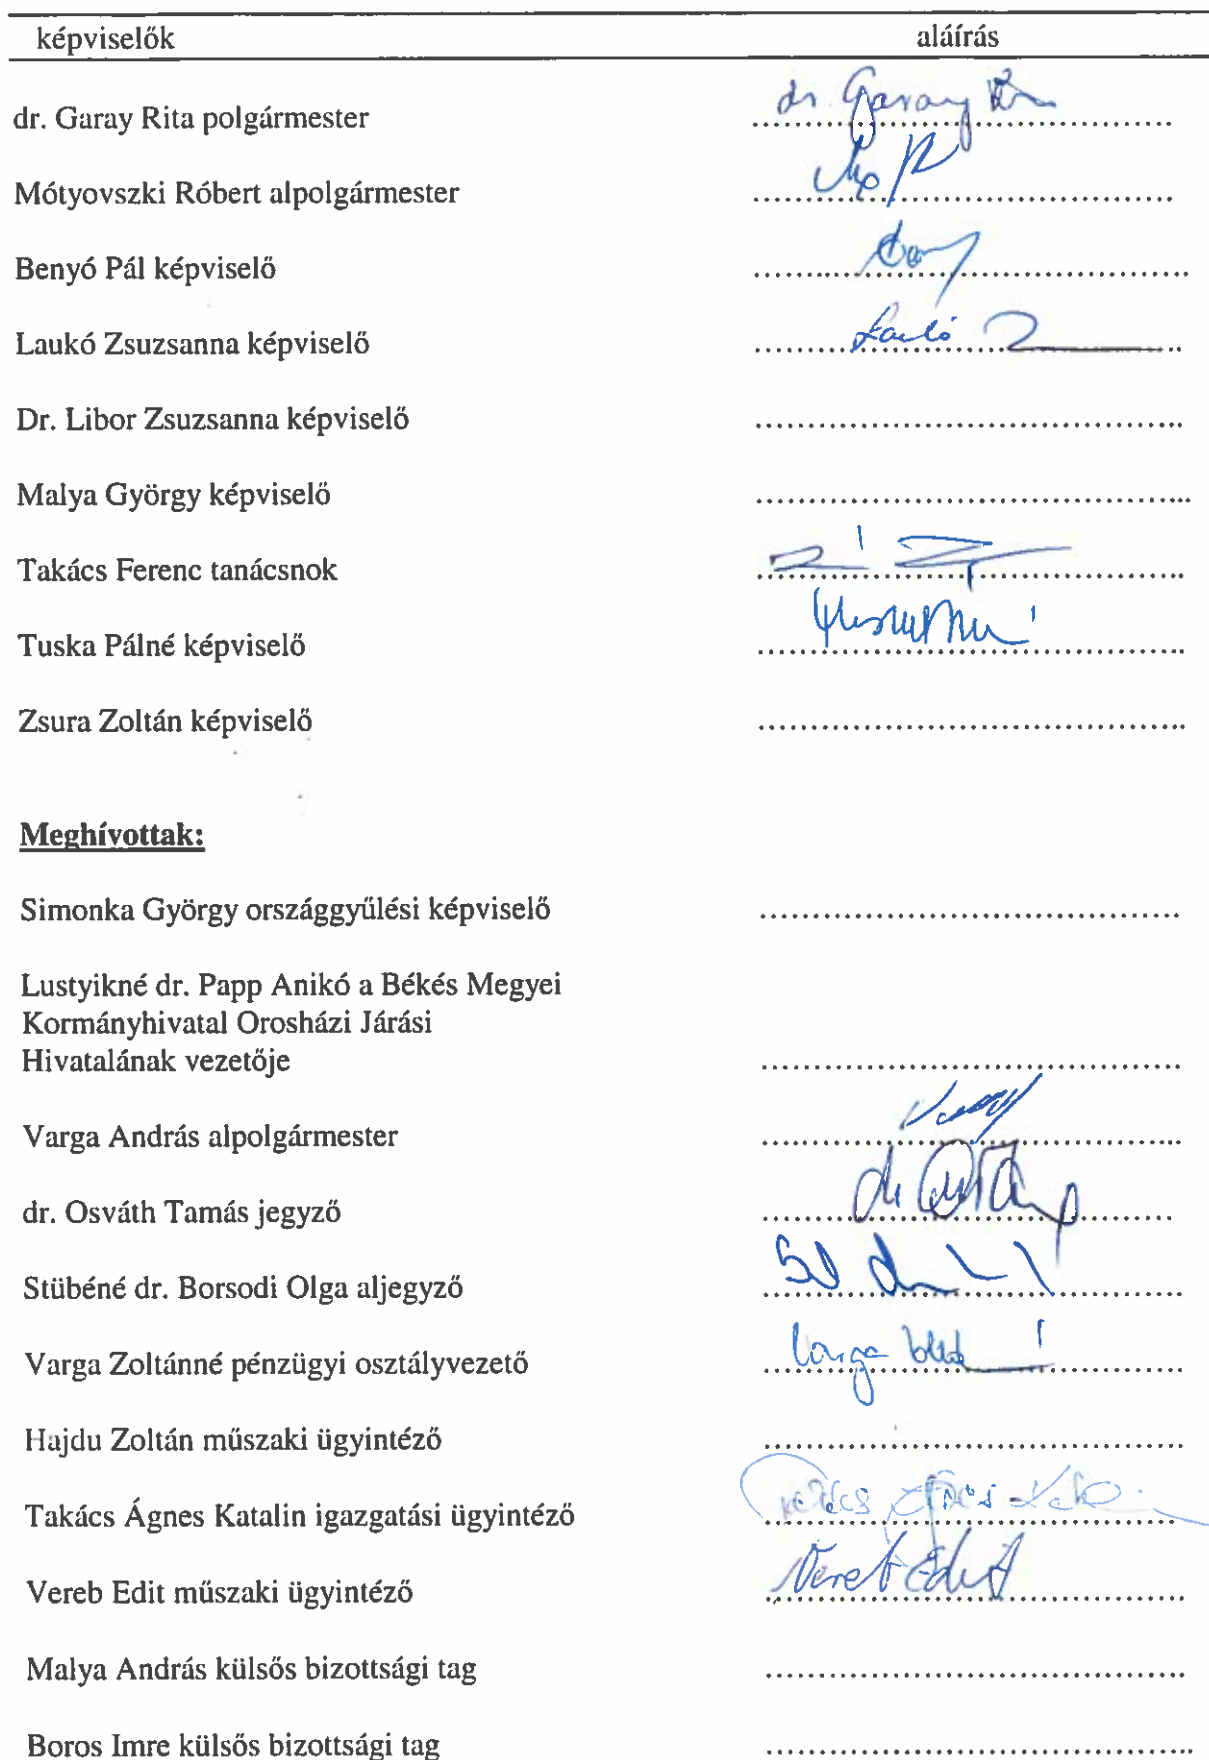 képviselők aláírás
dr. Garay Rita polgármester dr. Garay
Mótyovszki Róbert alpolgármester
Benyó Pál képviselő
Laukó Zsuzsanna képviselő Laukó
Dr. Libor Zsuzsanna képviselő
Malya György képviselő
Takács Ferenc tanácsnok
Tuska Pálné képviselő
Zsura Zoltán képviselő
Meghívottak:
Simonka György országgyűlési képviselő
Lustyikné dr. Papp Anikó a Békés Megyei
Kormányhivatal Orosházi Járási
Hivatalának vezetője
Varga András alpolgármester
dr. Osváth Tamás jegyző
Stübéné dr. Borsodi Olga aljegyző
Varga Zoltánné pénzügyi osztályvezető Varga
Hajdu Zoltán műszaki ügyintéző
Takács Ágnes Katalin igazgatási ügyintéző Takács Ágnes
Vereb Edit műszaki ügyintéző Vereb Edit
Malya András külsős bizottsági tag
Boros Imre külsős bizottsági tag